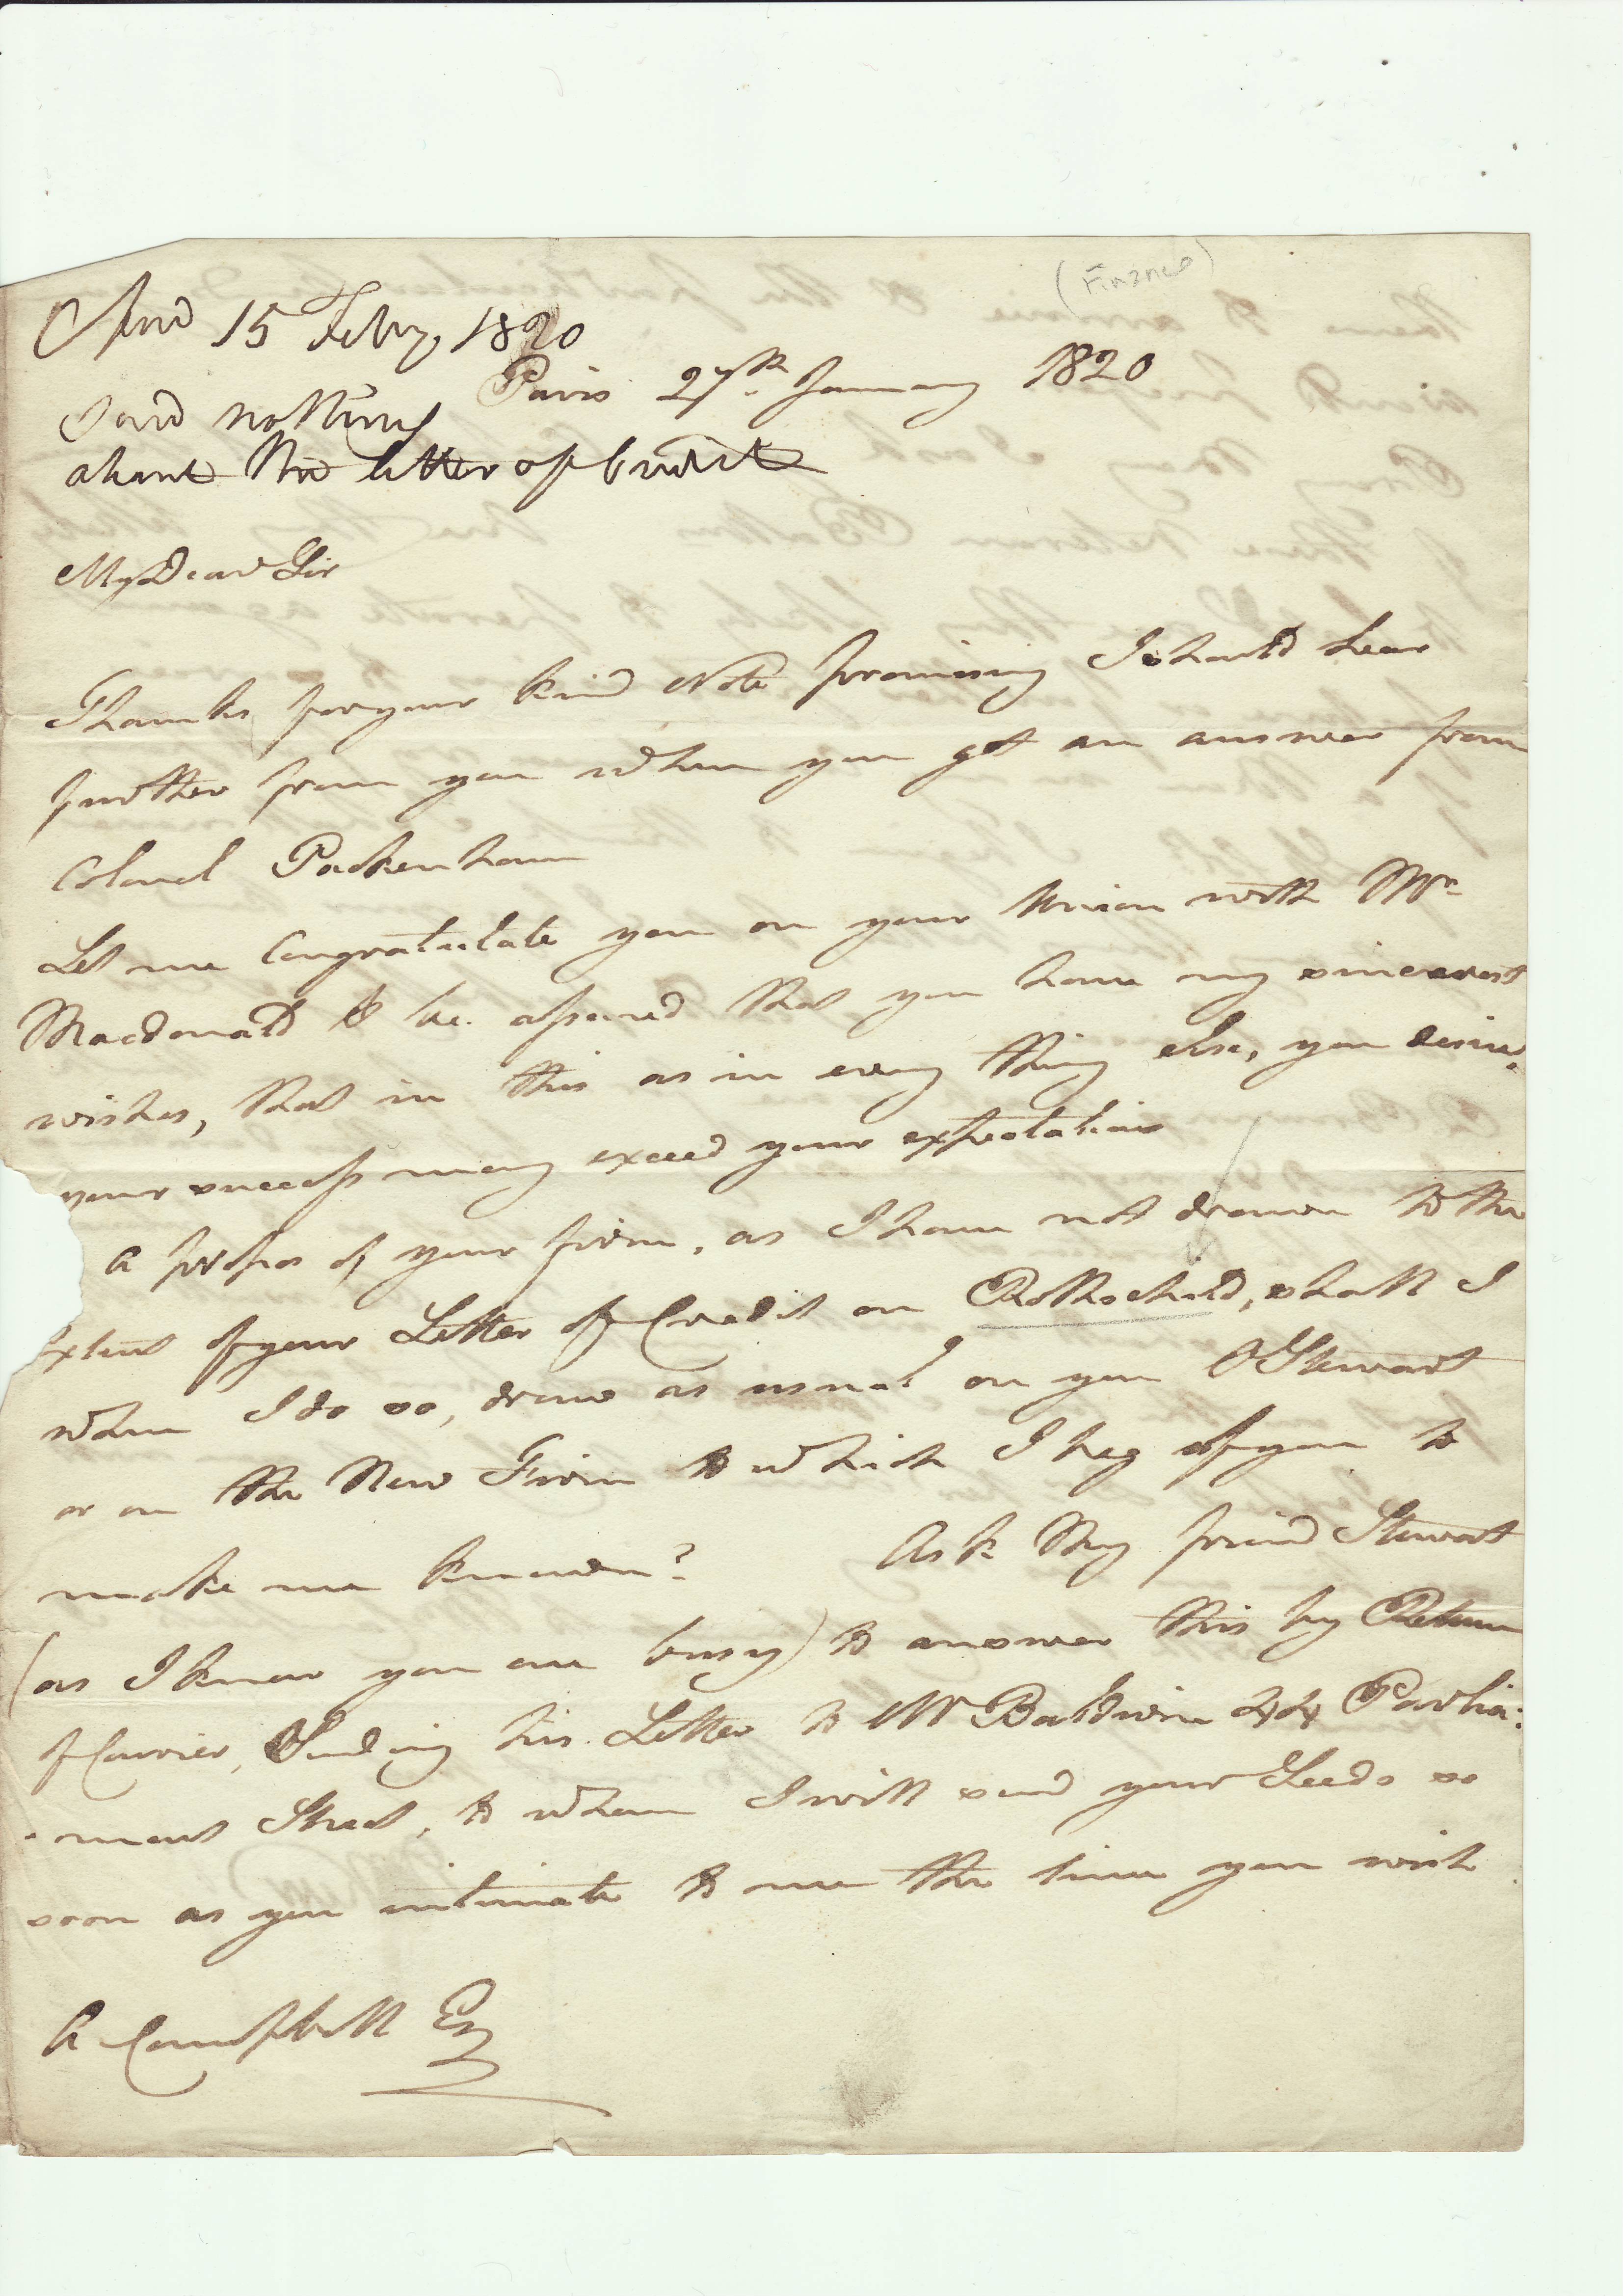 (Finance)
Answd 15 Feby, 1820
Paris 27th January 1820
Said nothing
about the letter of credit
My Dear Sir
Thanks for your kind Note promising I should hear
further from you when you get an answer from
Colonel Packenham
Let me Congratulate you on your Union with Mr
Macdonald & be assured that you have my sincerest
wishes, that in this as in every thing else, you desire,
your success may exceed your expectations
A propos of your firm, as I have not drawn to the
Extent of your Letter of Credit on Rothschild, shall I
when I do so, draw as usual on you & Stewart
or on the New Firm to which I beg of you to
make me known? Ask my friend Stewart
(as I know you are busy) to answer this by Return
of Courier, Sending his Letter to Mr Baldwin 24 Parlia:
-ment Street, to whom I will send your Seeds so
soon as you intimate to me the time you wish
A Campbell Esq